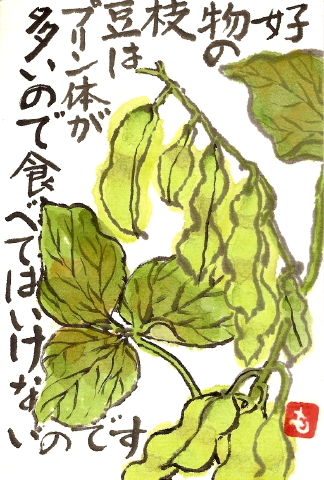 好
物の
枝
豆は
プリン体が
多いので食べてはいけな
いのです
も